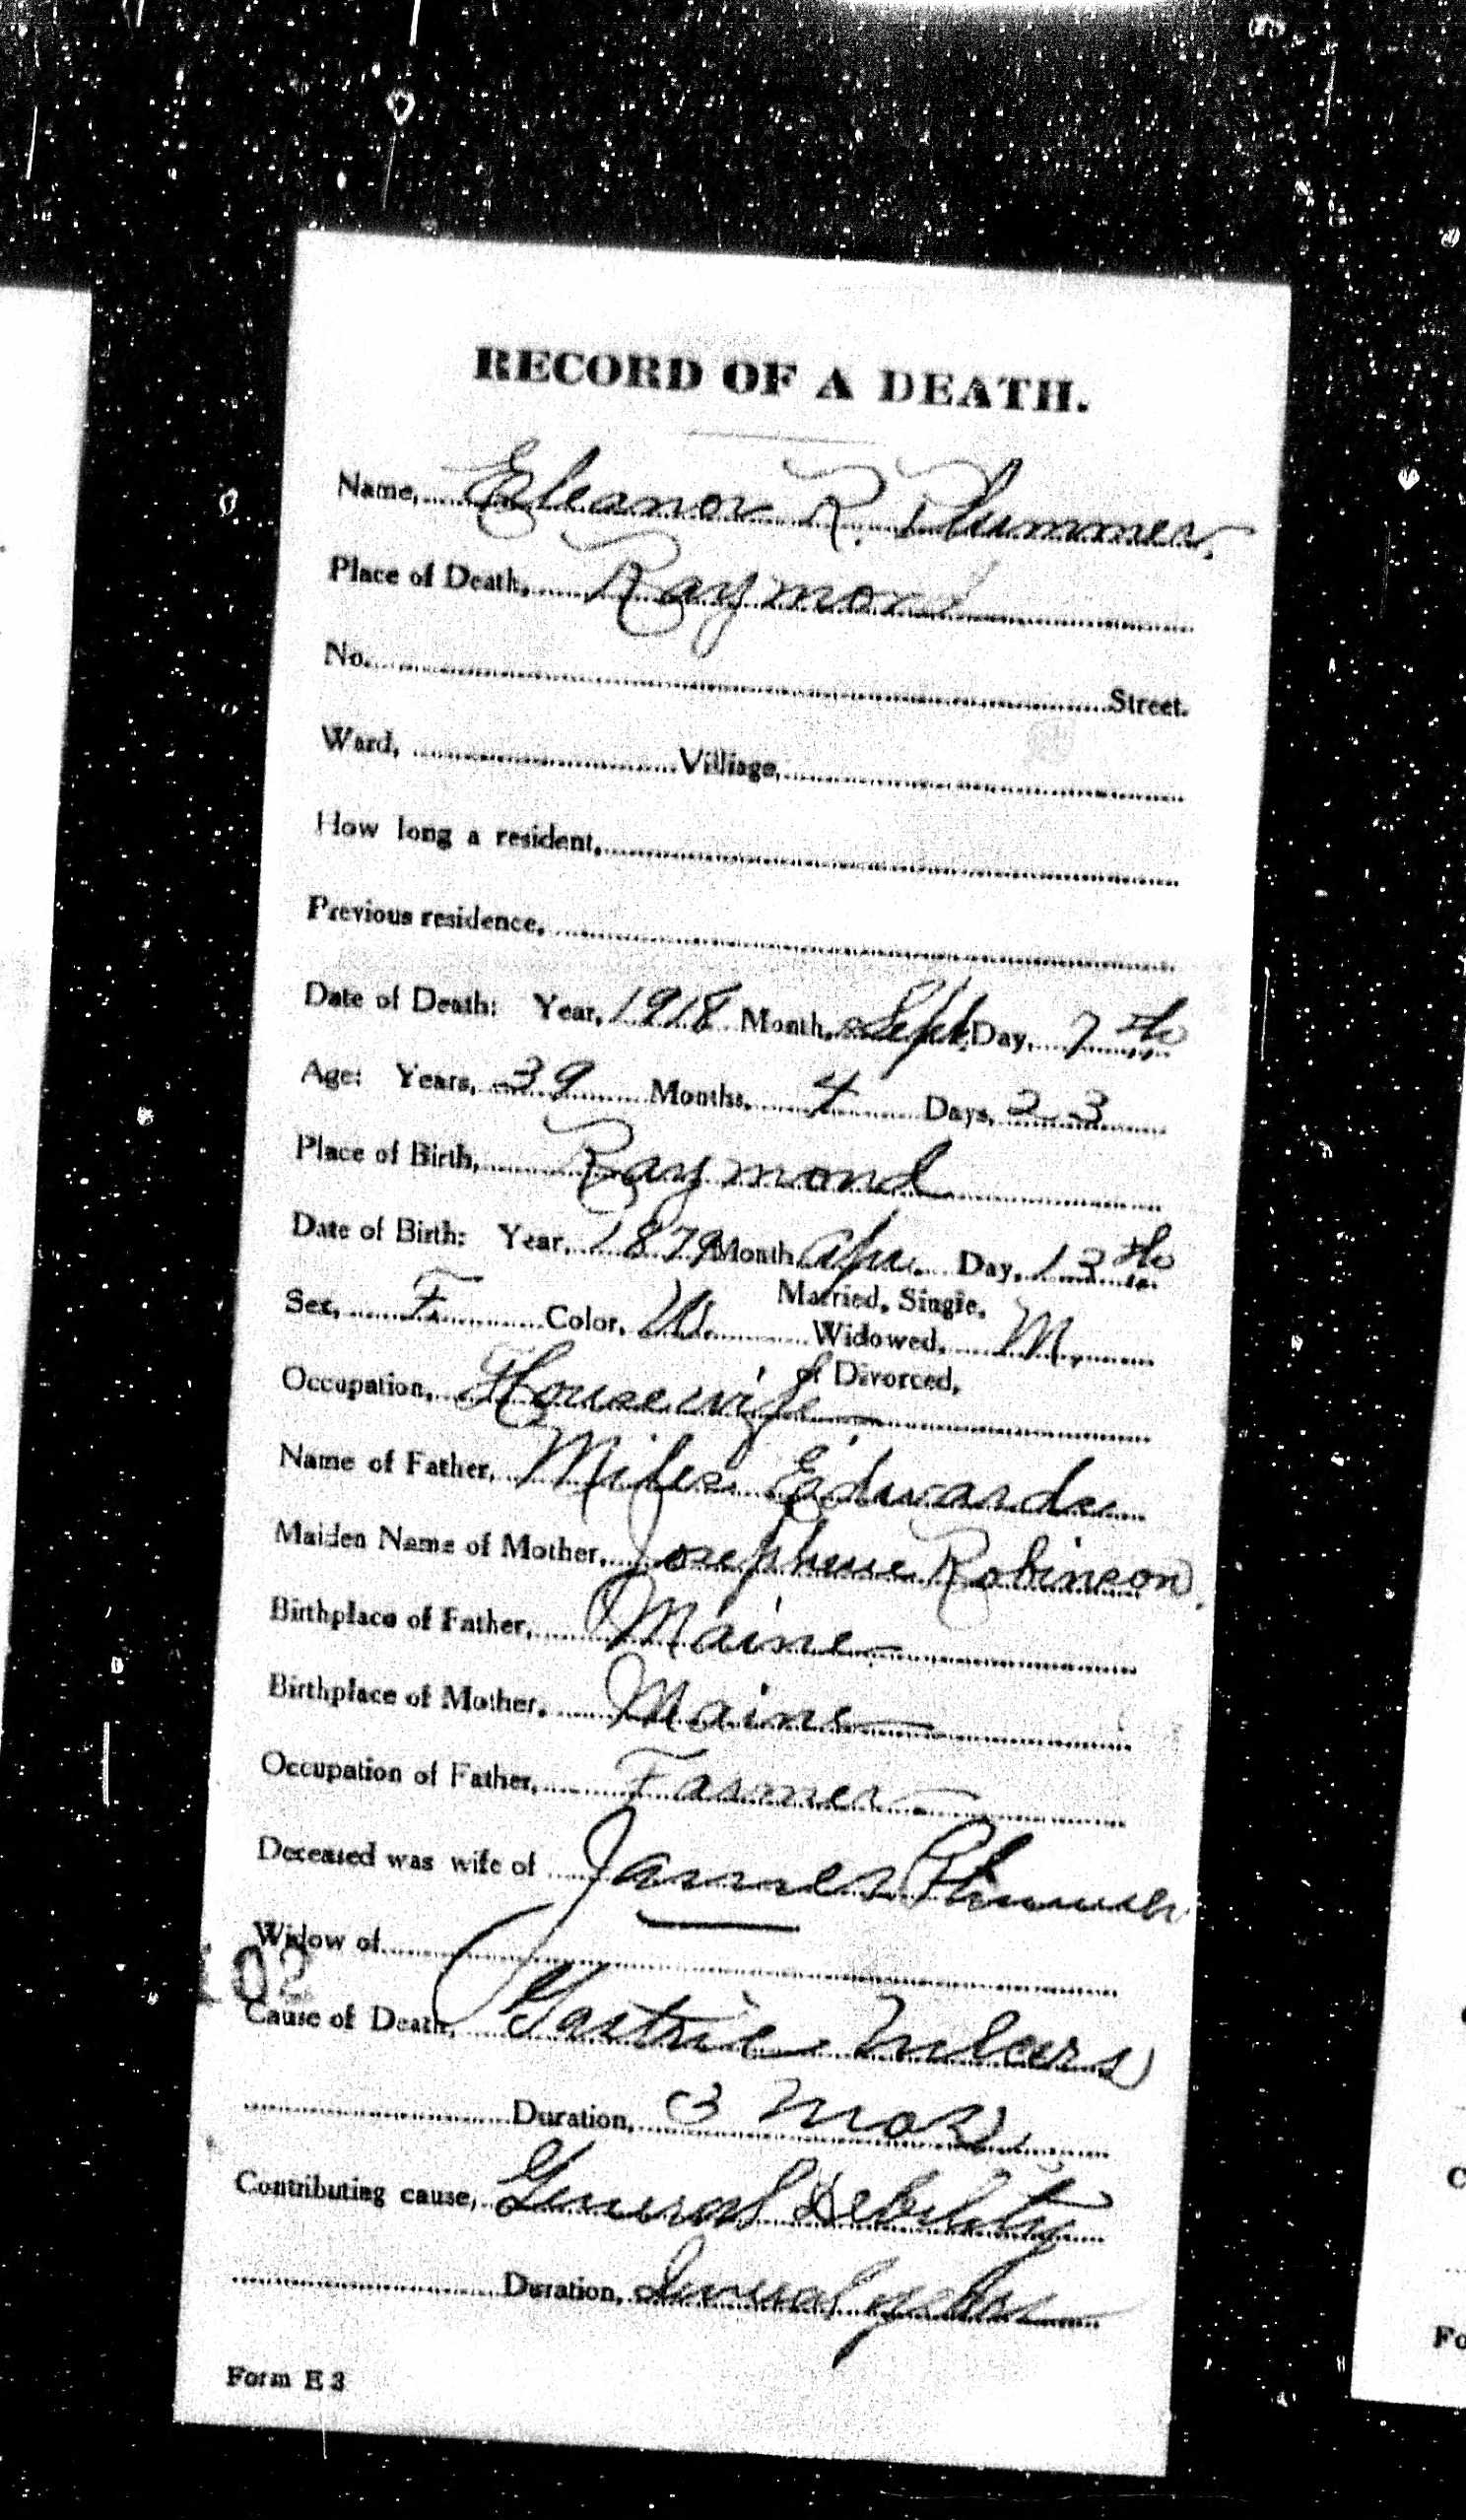 RECORD OF A DEATH.
Name, Eleanor R. Plummer.
Place of Death, Raymond
No. Street.
Ward, Village,
How long a resident,
Previous residence,
Date of Death: Year, 1918 Month, Sept. Day, 7th
Age: Years, 39 Months, 4 Days, 23
Place of Birth, Raymond
Date of Birth: Year, 1879 Month, Apr. Day, 13th
Sex, F. Color, W. Married, Single, Widowed, or Divorced, M.
Occupation, Housewife
Name of Father, Miles Edwards
Maiden Name of Mother, Josephine Robinson.
Birthplace of Father, Maine
Birthplace of Mother, Maine
Occupation of Father, Farmer
Deceased was wife of James Plummer
Widow of
102
Cause of Death, Gastric Ulcers
Duration, 3 mos.
Contributing cause, General Debility
Duration, Several years
Form E 3
Fo